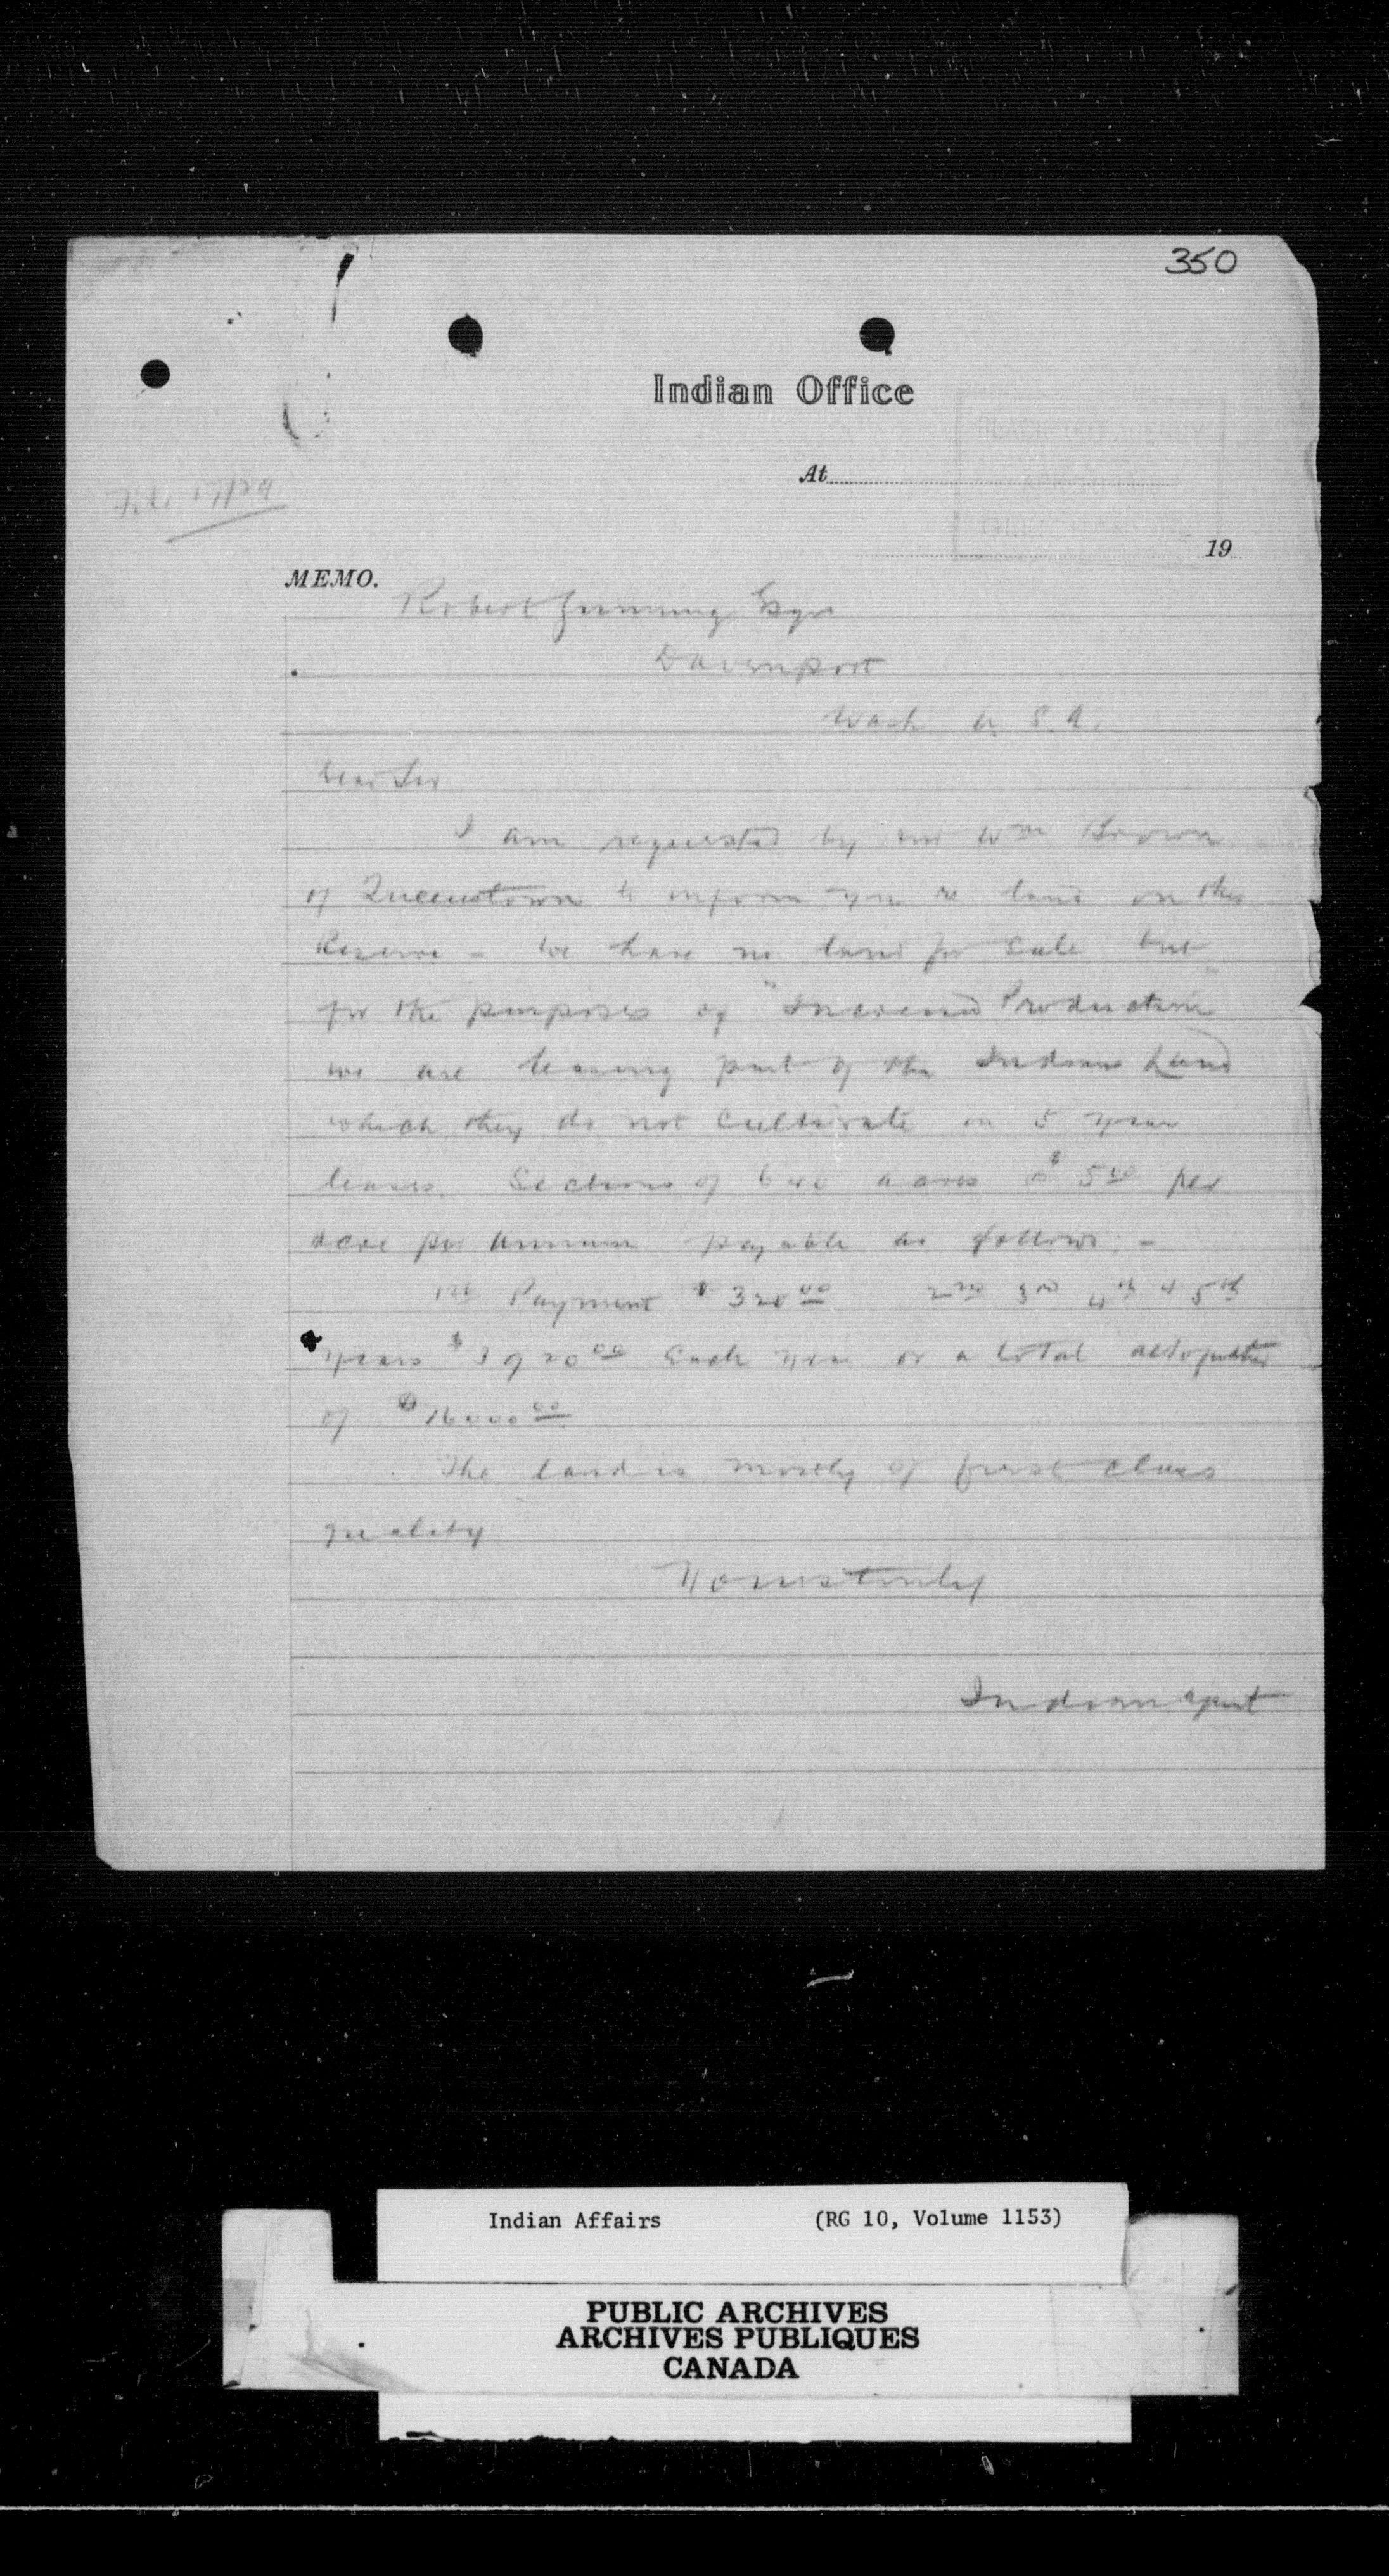 350
Indian Office
BLACKFOOT AGENCY
At
GLEICHEN
19
File 17/29
MEMO.
Robert Esqr
Davenport
Wash U.S.A.
Dear Sir
I am requested by Mr Wm Brown
of Queenstown to inform you re land on this
Reserve - We have no land for sale but
for the purposes of "Increased Production"
we are leasing part of the Indians Land
which they do not cultivate on 5 year
leases. Sections of 640 acres @ $5.00 per
acre per Annum payable as follows:-
1st Payment $320.00 2nd 3rd 4th & 5th
years $3920.00 Each year or a total altogether
of $16000.00
The land is mostly of first class
quality
Yours truly
Indian Agent
Indian Affairs (RG 10, Volume 1153)
PUBLIC ARCHIVES
ARCHIVES PUBLIQUES
CANADA